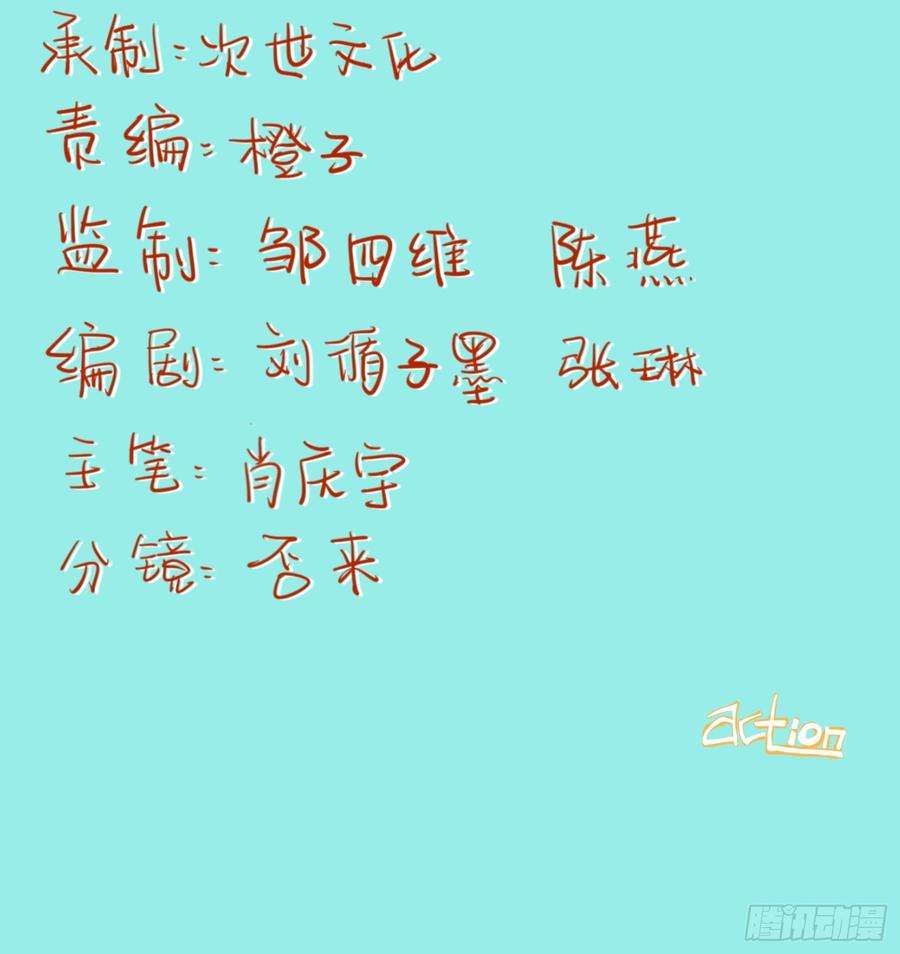 承制:次世文化
责编:橙子
监制:邹四维 陈燕
编剧:刘循子墨 张琳
主笔:肖庆宇
分镜:否来
action
腾讯动漫